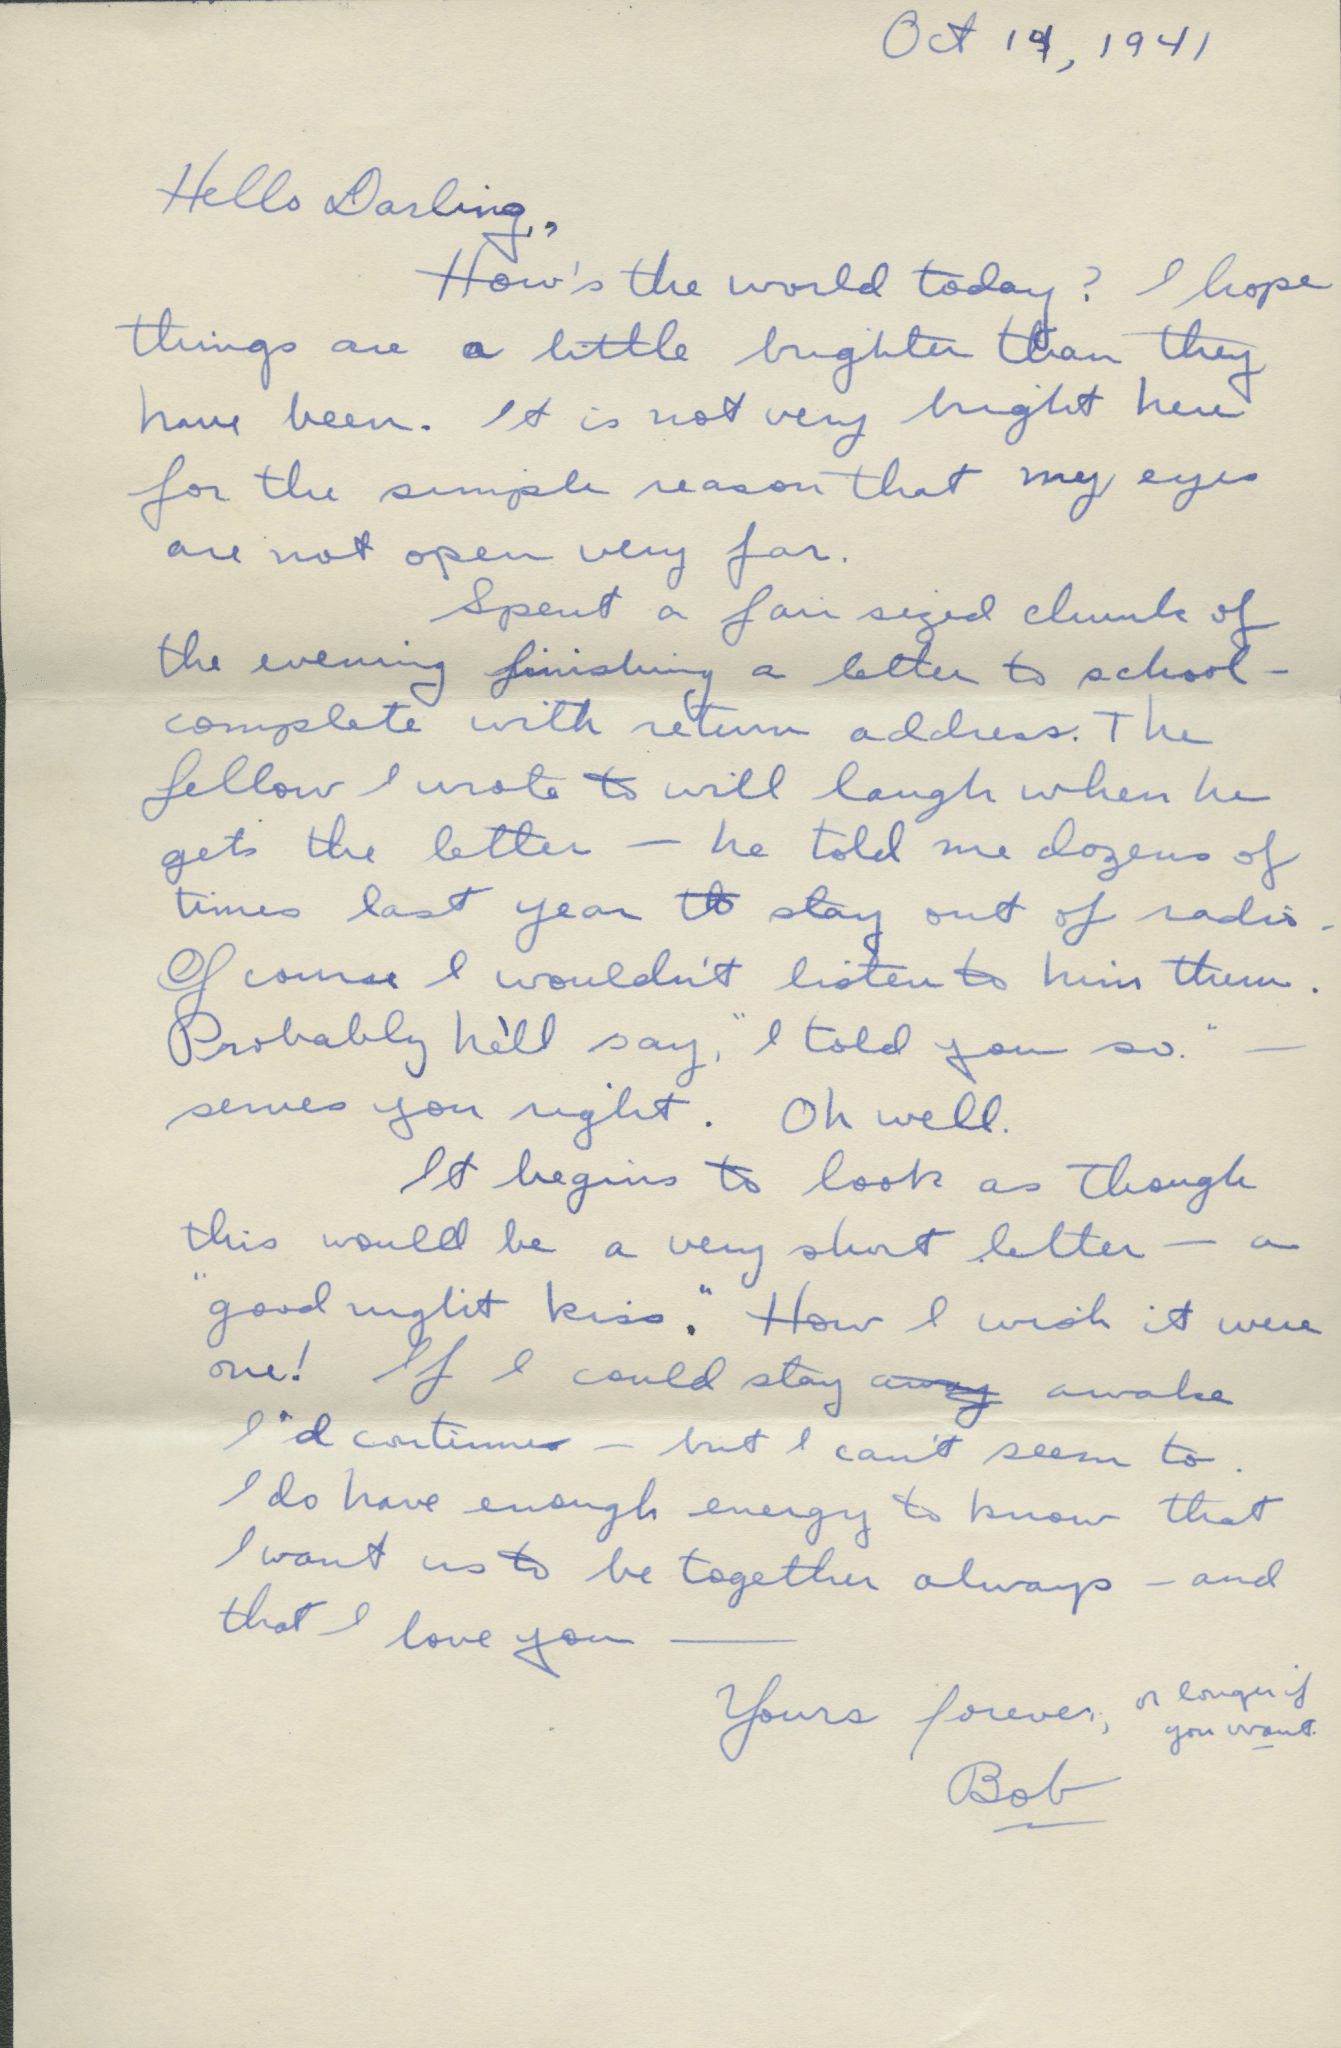 Oct 14, 1941
Hello Darling,
How's the world today? I hope
things are a little brighter than they
have been. It is not very bright here
for the simple reason that my eyes
are not open very far.
Spent a fair sized chunk of
the evening finishing a letter to school -
complete with return address. The
fellow I wrote to will laugh when he
gets the letter — he told me dozens of
times last year to stay out of radio -
Of course I wouldn't listen to him then.
Probably he'll say, "I told you so." —
serves you right. Oh well.
It begins to look as though
this would be a very short letter — a
"good night kiss." How I wish it were
one! If I could stay away awake
I'd continue — but I can't seem to.
I do have enough energy to know that
I want us to be together always — and
that I love you —
Yours forever, or longer if
you want.
Bob